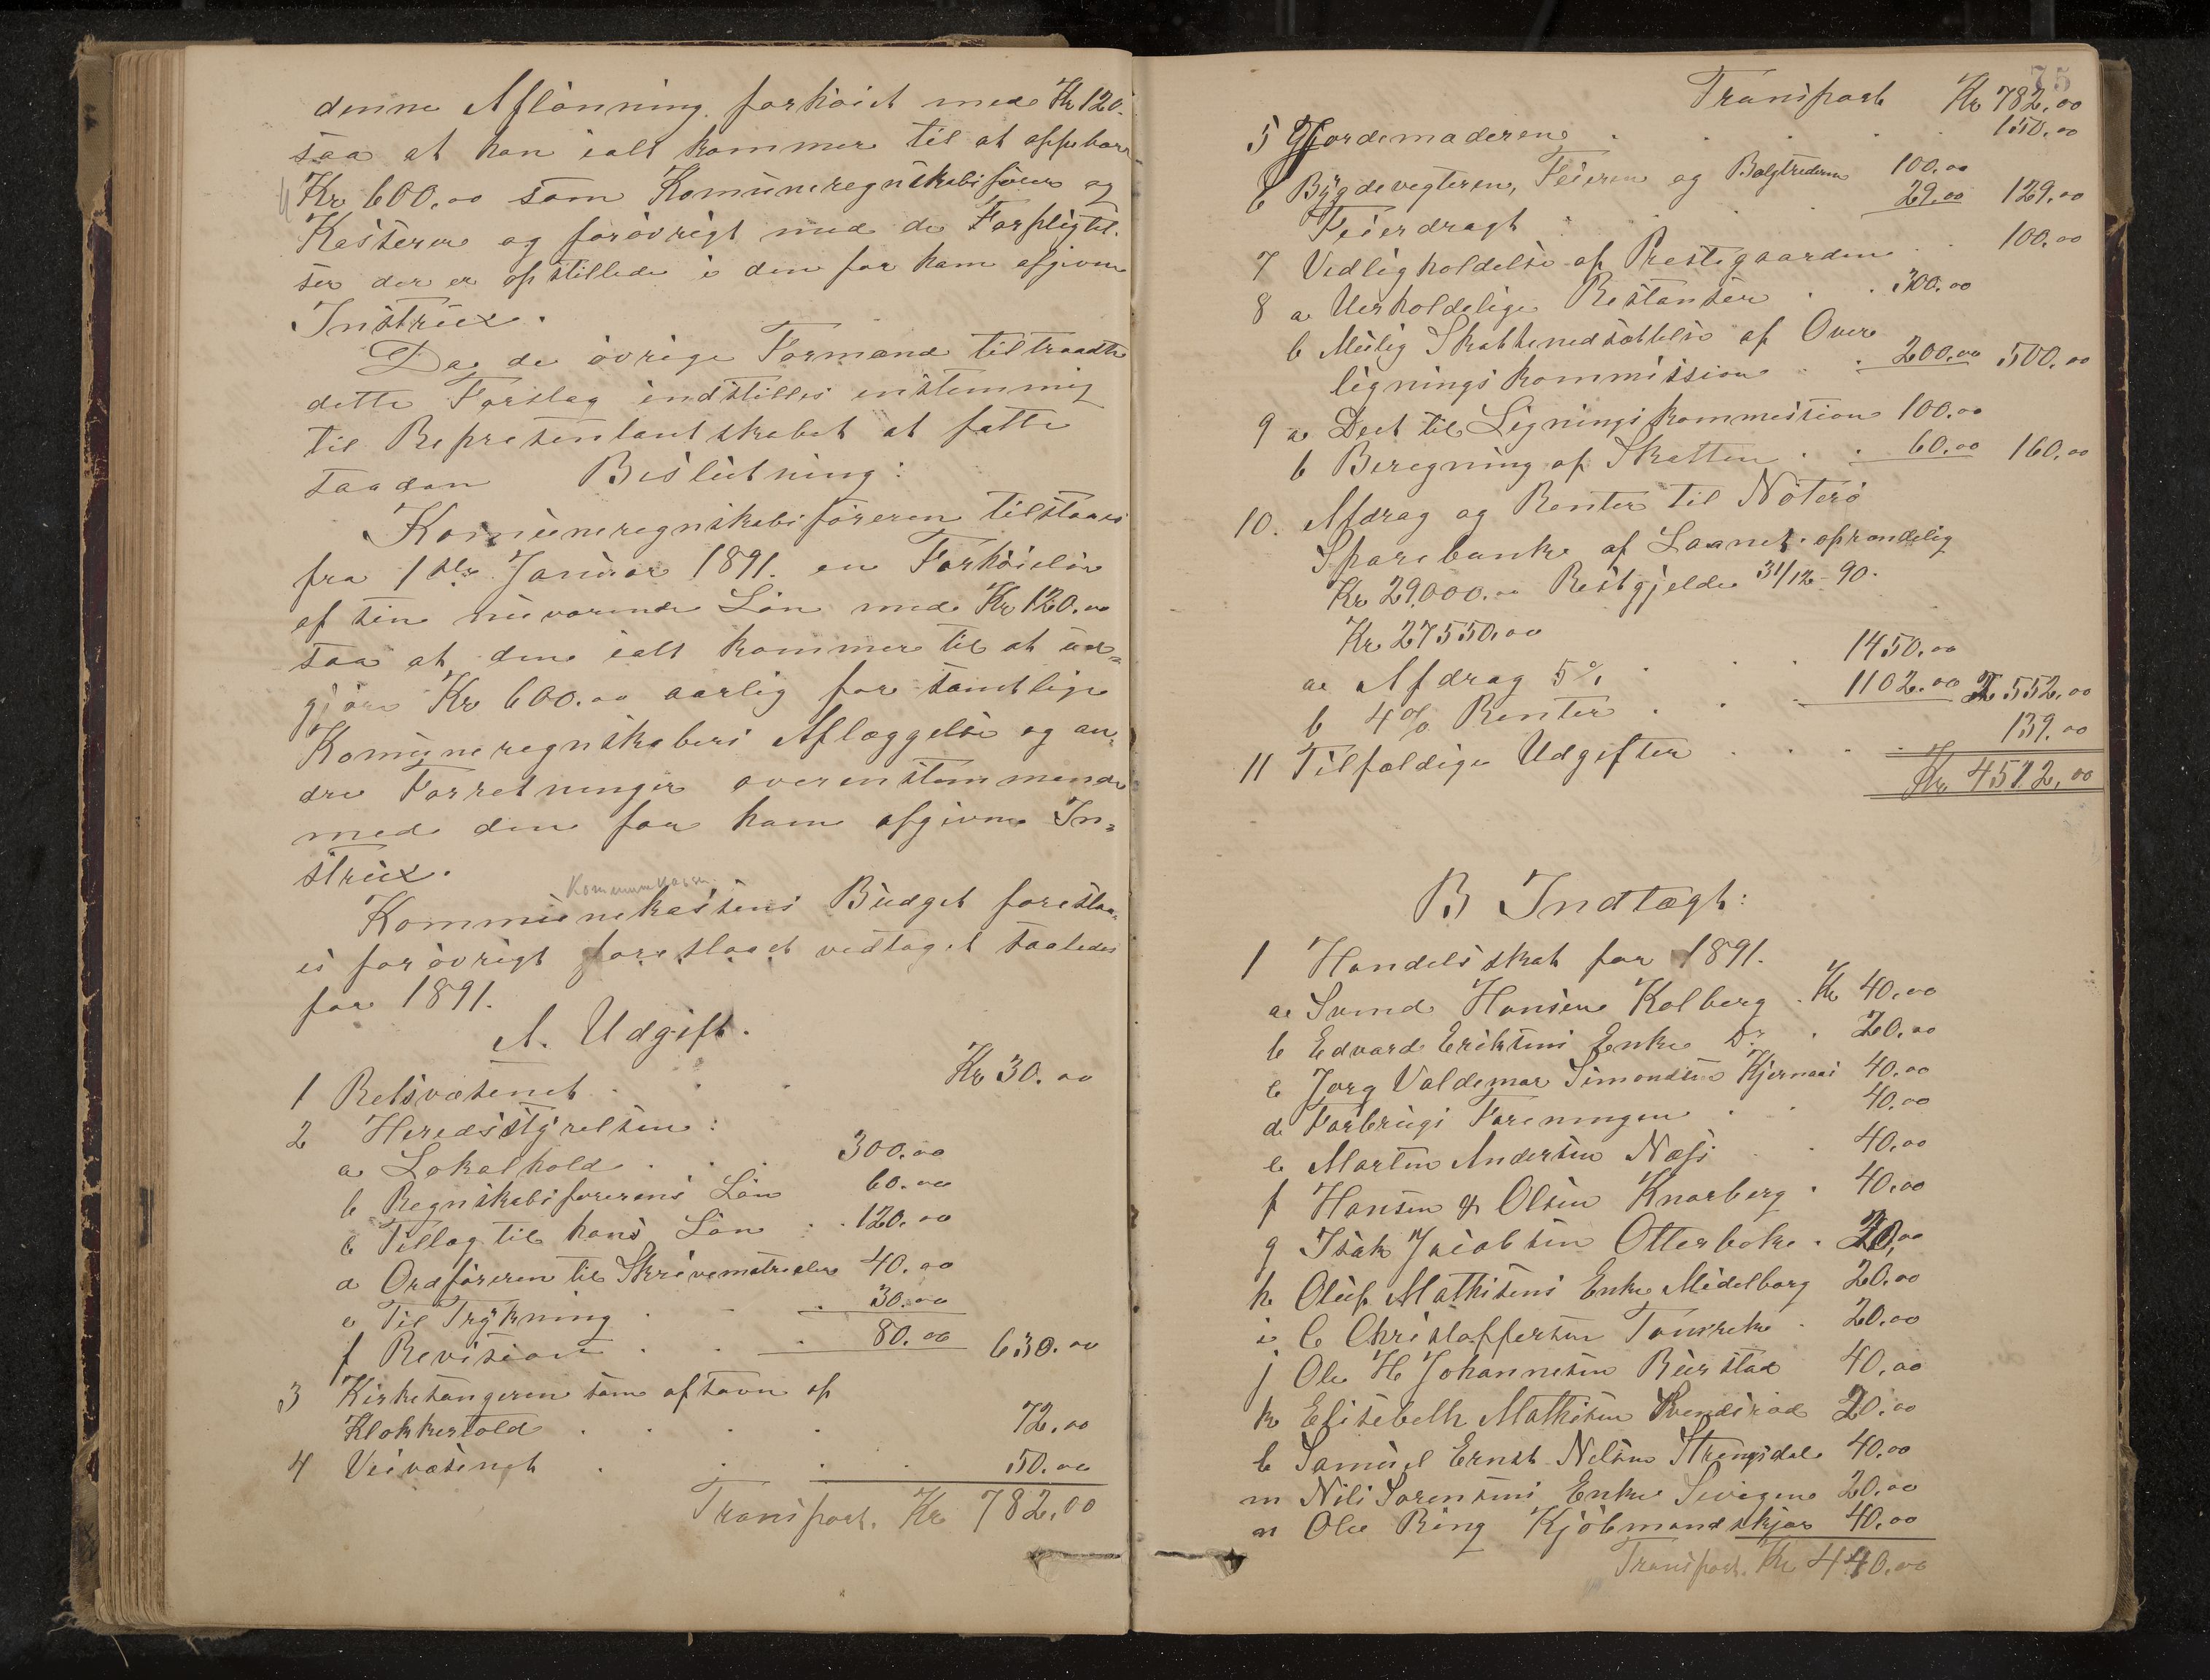 denne Aflønning forhøiet med Kr 120.
saa at han ialt kommer til at oppebære
Kr 600.00 som Komuneregnskabsfører og
Kasserer og forøvrigt med de Forpligtel-
ser der er opstillede i den for ham afgivne
Instrux.
Da de øvrige Formænd tiltraadte
dette Forslag indstilles enstemmig
til Representantskabet at fatte
saadan Beslutning:
Komuneregnskabsføreren tilstaaes
fra 1ste Januar 1891. en Forhøielse
af sin nuværende Løn med Kr 120.00
saa at den ialt kommer til at ud=
gjøre Kr 600.00 aarlig for samtlige
Komuneregnskabers Aflæggelse og an=
dre Forretninger overenstemmende
med den for ham afgivne In=
strux.
Kommunekassen
Kommunekassens Budget foreslaa-
es forøvrigt foreslaaet vedtaget saaledes
for 1891.
A. Udgift.
1 Retsvæsenet . . . Kr 30.00
2 Heredsstyrelsen:
a Lokalhold . . . 300.00
b Regnskabsførerens Løn 60.00
c Tillæg til hans Løn . . 120.00
d Ordføreren til Skrivematrialer 40.00
e Til Trykning . . . 30.00
f Revision . . . 80.00 630.00
3 Kirkesangeren som afsavn af
Klokkertold . . . . 72.00
4 Veivæsenet . . . . 50.00
Transport. Kr 782,00
75
Transport Kr 782,00
5 Gjordemoderen . . . . . 150.00
6 Bygdevægteren, Feieren og Bælgtrederen 100.00
Feierdragt . . . . 29.00 129.00
7 Vedligholdelse af Prestegaarden . . 100.00
8 a Uerholdelige Restanser . . 300.00
b Mulig Skattenedsættelse af Over
ligningskommission . . 200.00 500.00
9 a Diet til Ligningskommission 100.00
b Beregning af Skatten . . 60.00 160.00
10. Afdrag og Renter til Nøterø
Sparebank af Laanet oprindelig
Kr 29,000.00 Restgjeld 31/12-90.
Kr 27550,00
a Afdrag 5% . . . 1450.00
b 4% Renter . . . 1102.00 2552.00
11 Tilfældige Udgifter . . . . 139.00
Kr. 4512,00
B Indtægt:
1 Handelsskat for 1891.
a Svend Hansen Kolberg . Kr 40.00
b Edvard Eriksens Enke Do . 20.00
c Jørg Valdemar Simonsen Kjernaas 40.00
d Forbrugs Foreningen . . 40.00
e Martin Andersen Næss . . 40.00
f Hansen & Olsen Knarberg . 40.00
g Isak Jacobsen Otterbæk . 20,00
h Oluf Mathisens Enke Midelborg 20.00
i C Christoffersen . 20.00
j Ole H Johannesen Buerstad 40.00
k Elisebeth Mathisen 20.00
l Samuel Ernst Nilsen Strengsdal 40.00
m Nils Sørensens Enke 20.00
n Ole Ring Kjøbmandskjær 40.00
Transport. Kr 440.00